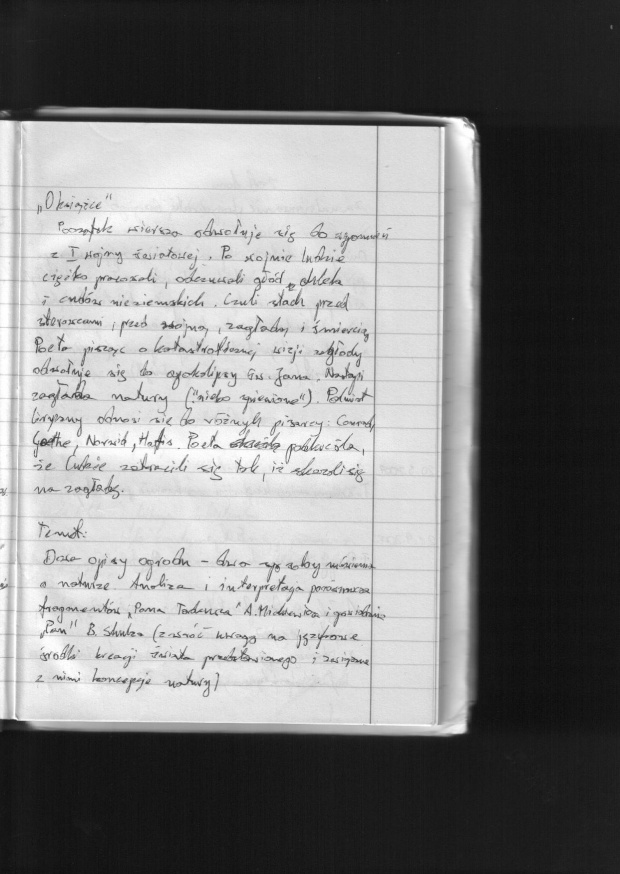 „O książce"
Początek wiersza odwołuje się do wspomnień
z I wojny światowej. Po wojnie ludzie
ciężko pracowali, odczuwali głód chleba
i cudów nieziemskich. Czuli strach przed
starcami, przed wojną, zagładą i śmiercią
Poeta pisząc o katastroficznej wizji zagłady
odwołuje się do apokalipsy św. Jana. Nastąpi
zagłada natury ("niebo spienione"). Podmiot
liryczny odnosi się do różnych pisarzy: Conrad,
Goethe, Norwid, Hafis. Poeta podkreśla,
że ludzie zatracili się tak, iż skazali się
na zagładę.
Temat:
Dwa opisy ogrodu – dwa sposoby mówienia
o naturze. Analiza i interpretacja porównawcza
fragmentów „Pana Tadeusza" A. Mickiewicza i opowiadania
„Pan" B. Shulza (zwróć uwagę na językowe
środki kreacji świata przedstawionego i związane
z nimi koncepcje natury)